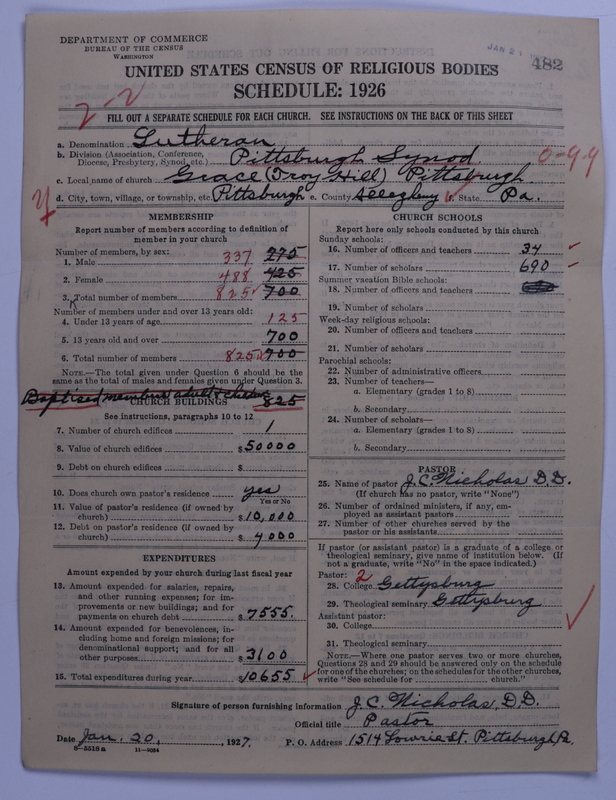 DEPARTMENT OF COMMERCE
BUREAU OF THE CENSUS
WASHINGTON
JAN 21
482
UNITED STATES CENSUS OF RELIGIOUS BODIES
SCHEDULE: 1926
2-2
FILL OUT A SEPARATE SCHEDULE FOR EACH CHURCH. SEE INSTRUCTIONS ON THE BACK OF THIS SHEET
a. Denomination Lutheran
b. Division (Association, Conference, Diocese, Presbytery, Synod, etc.) Pittsburgh Synod 0-99
c. Local name of church Grace (Troy Hill) Pittsburgh
d. City, town, village, or township, etc. Pittsburgh e. County Allegheny f. State Pa.
MEMBERSHIP
Report number of members according to definition of
member in your church
Number of members, by sex:
1. Male 337 275
2. Female 488 425
3. Total number of members 825 700
Number of members under and over 13 years old:
4. Under 13 years of age 125
5. 13 years old and over 700
6. Total number of members 825 700
NOTE.—The total given under Question 6 should be
same as the total of males and females given under Question 3.
Baptised members adult children 825
CHURCH BUILDINGS
See instructions, paragraphs 10 to 12
7. Number of church edifices 1
8. Value of church edifices $50000
9. Debt on church edifices $
10. Does church own pastor's residence yes
Yes or No
11. Value of pastor's residence (if owned by
church) $10,000
12. Debt on pastor's residence (if owned by
church) $4000
EXPENDITURES
Amount expended by your church during last fiscal year
13. Amount expended for salaries, repairs,
and other running expenses; for im-
provements or new buildings; and for
payments on church debt $7555.
14. Amount expended for benevolences, in-
cluding home and foreign missions; for
denominational support; and for all
other purposes $3100
15. Total expenditures during year $10655
CHURCH SCHOOLS
Report here only schools conducted by this church
Sunday schools:
16. Number of officers and teachers 34
17. Number of scholars 690
Summer vacation Bible schools:
18. Number of officers and teachers
19. Number of scholars
Week-day religious schools:
20. Number of officers and teachers
21. Number of scholars
Parochial schools:
22. Number of administrative officers
23. Number of teachers—
a. Elementary (grades 1 to 8)
b. Secondary
24. Number of scholars—
a. Elementary (grades 1 to 8)
b. Secondary
PASTOR
25. Name of pastor J. C. Nicholas D.D.
(If church has no pastor, write "None")
26. Number of ordained ministers, if any, em-
ployed as assistant pastors
27. Number of other churches served by the
pastor or his assistants
If pastor (or assistant pastor) is a graduate of a college or
theological seminary, give name of institution below. (If
not a graduate, write "No" in the space indicated.)
Pastor: 2
28. College Gettysburg
29. Theological seminary Gettysburg
Assistant pastor:
30. College
31. Theological seminary
NOTE.—Where one pastor serves two or more churches,
Questions 28 and 29 should be answered only on the schedule
for one of the churches; on the schedules for the other churches,
write "See schedule for church."
Signature of person furnishing information J. C. Nicholas, D.D.
Official title Pastor
Date Jan. 20, 1927. P. O. Address 1514 Lowrie St. Pittsburgh Pa.
8-5518 a 11-9054